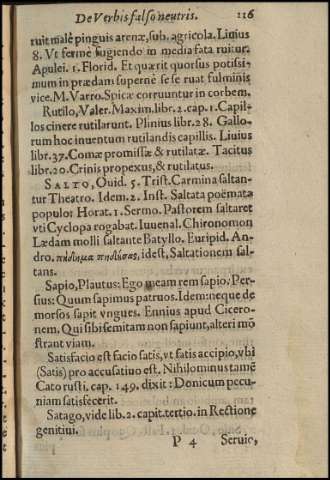 De Verbis falso neutris. 116
ruit malè pinguis arenæ, sub. agricola. Liuius
8. Vt fermè fugiendo in media fata ruitur.
Apulei. 1. Florid. Et quærit quorsus potissi-
mum in prædam supernè se se ruat fulminis
vice. M. Varro. Spicæ corruuntur in corbem.
Rutilo, Valer. Maxim. libr. 2. cap. 1. Capil-
los cinere rutilarunt. Plinius libr. 28. Gallo-
rum hoc inuentum rutilandis capillis. Liuius
libr. 37. Comæ promissæ & rutilatæ. Tacitus
libr. 20. Crinis propexus, & rutilatus.
SALTO, Ouid. 5. Trist. Carmina saltan-
tur Theatro. Idem. 2. Inst. Saltata poëmata
populo: Horat. 1. Sermo. Pastorem saltaret
vti Cyclopa rogabat. Iuuenal. Chironomon
Lædam molli saltante Batyllo. Euripid. An-
dro. πήδημα πηδήσας, idest, Saltationem sal-
tans.
Sapio, Plautus: Ego meam rem sapio. Per-
sius: Quum sapimus patruos. Idem: neque de
morsos sapit vngues. Ennius apud Cicero-
nem. Qui sibi semitam non sapiunt, alteri mõ
strant viam.
Satisfacio est facio satis, vt satis accipio, vbi
(Satis) pro accusatiuo est. Nihilominus tamẽ
Cato rusti. cap. 149. dixit: Donicum pecu-
niam satisfecerit.
Satago, vide lib. 2. capit. tertio. in Rectione
genitiui.
P 4 Seruio,